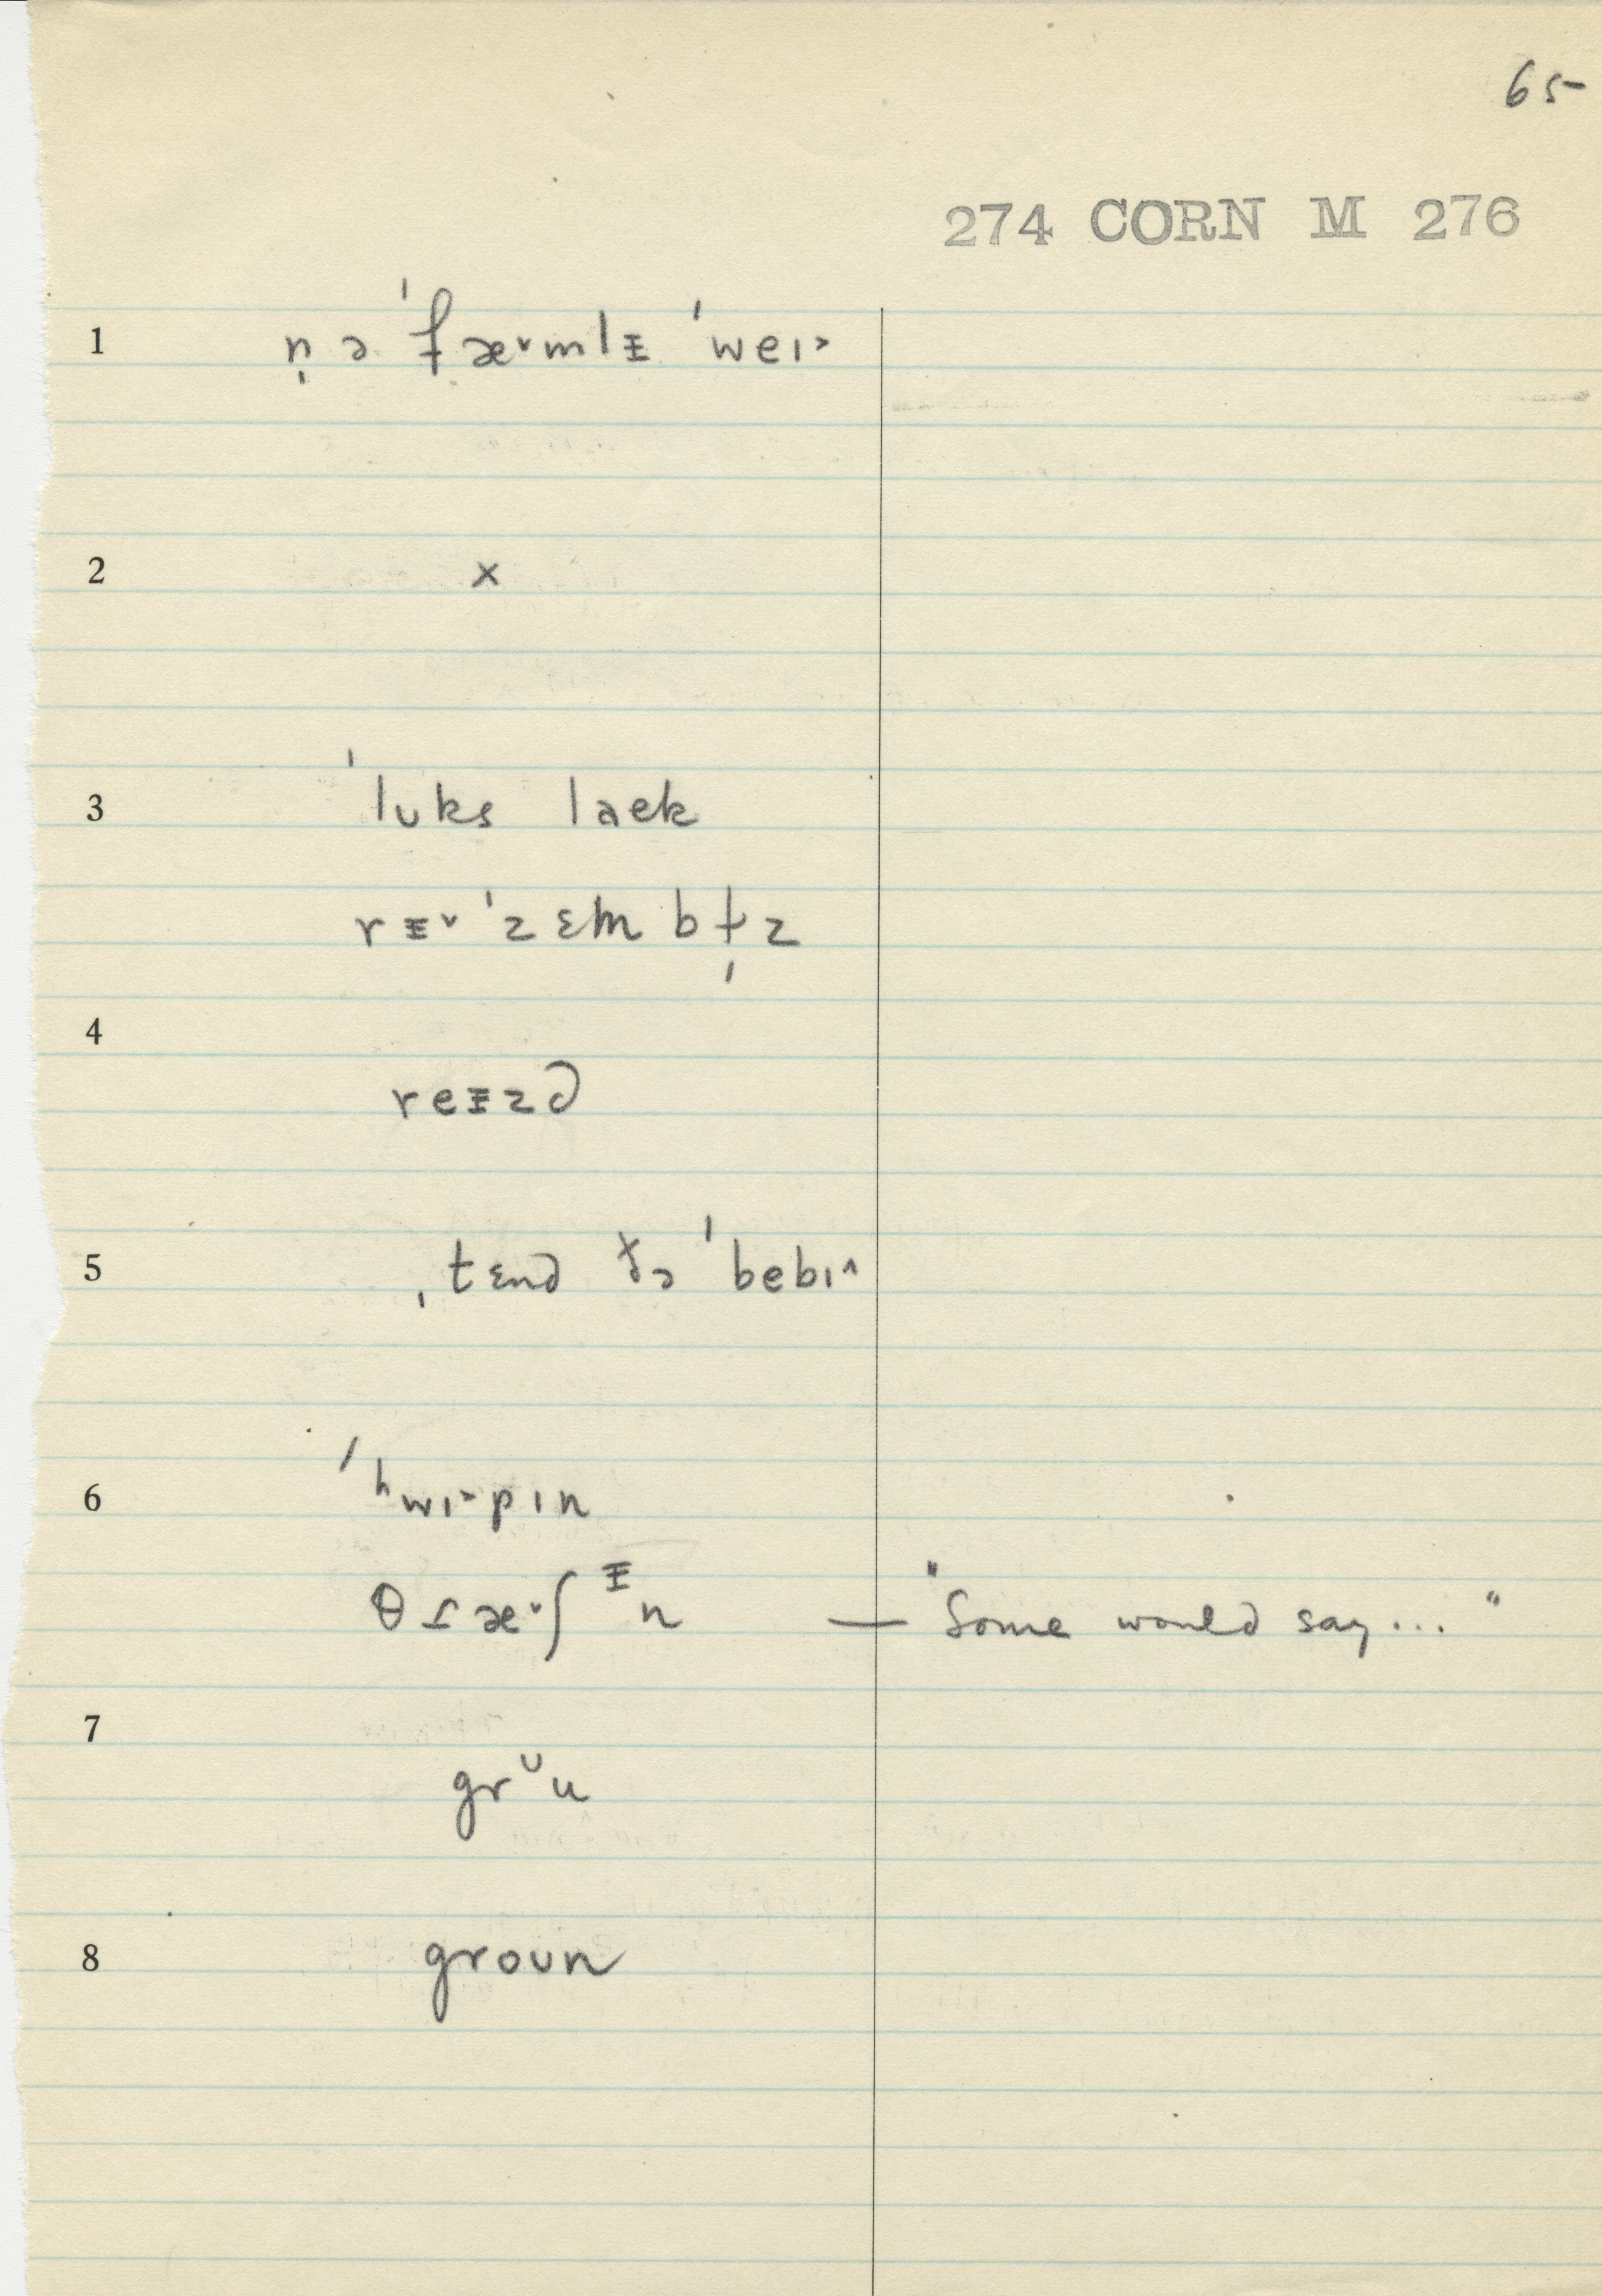 65
274 CORN M 276
1 n̩ ə ˈfæ˅mlᵻ ˈweɪ˃
2 x
3 ˈlʊks laek
rᵻ˅ ˈzɛmbɫ̩z
4 reᵻzd
5 ˌtɛnd ðə ˈbebɪ˄
6 ˈʰwɪ˃pɪn
θɾæ˅ʃᵻn — "Some would say..."
7 grᶷu
8 groʊn